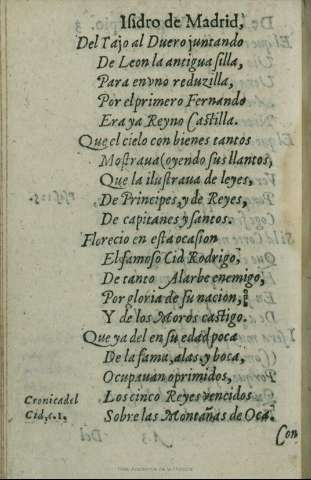 Isidro de Madrid,
Del Tajo al Duero juntando
De Leon la antigua silla,
Para en vno reduzilla,
Por el primero Fernando
Era ya Reyno Castilla.
Que el cielo con bienes tantos
Mostraua (oyendo sus llantos,
Que la ilustraua de leyes,
De Principes, y de Reyes,
De capitanes y santos.
Florecio en esta ocasion
El famoso Cid Rodrigo,
De tanto Alarbe enemigo,
Por gloria de su nacion,
Y de los Moros castigo.
Que ya del en su edad poca
De la fama, alas, y boca,
Ocupauan oprimidos,
Cronica del
Cid, c. 1.
Los cinco Reyes vencidos
Sobre las Montañas de Oca.
Con